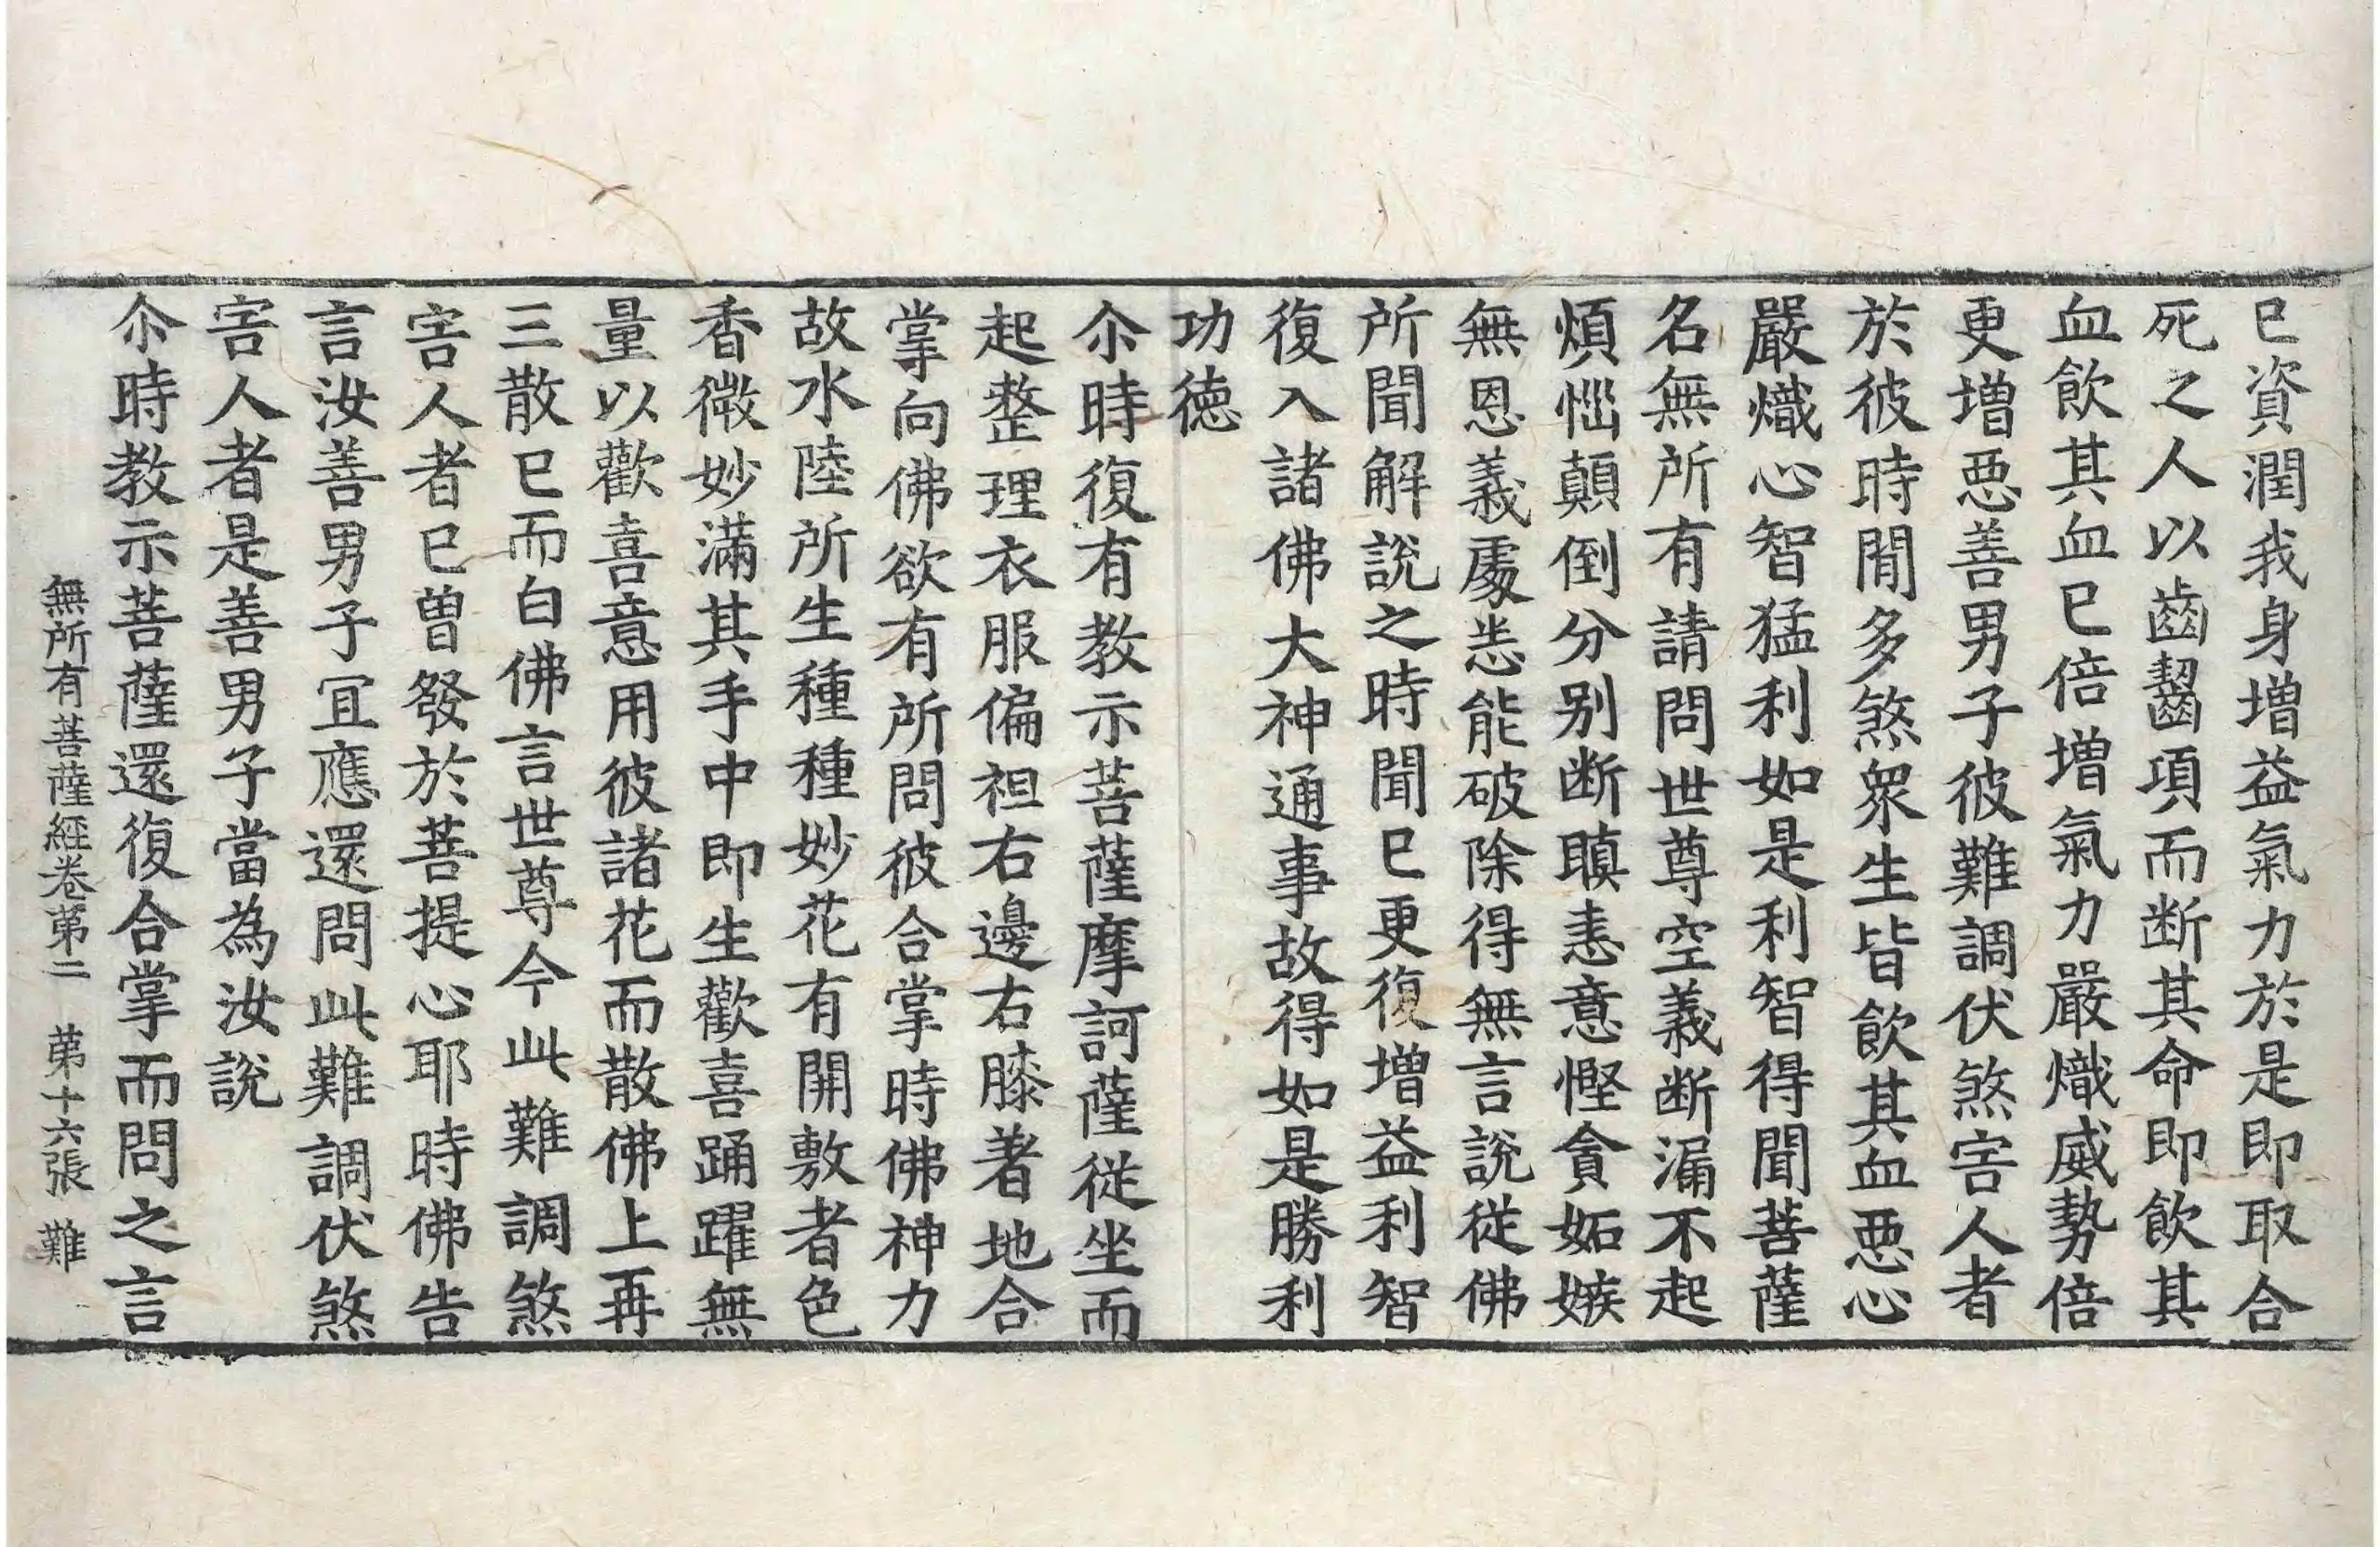 已資潤我身增益氣力於是即取合
死之人以齒齧項而断其命即飲其
血飲其血已倍增氣力嚴熾威勢倍
更增惡善男子彼難調伏煞害人者
於彼時閒多煞眾生皆飲其血惡心
嚴熾心智猛利如是利智得聞菩薩
名無所有請問世尊空義断漏不起
煩惱顛倒分别断瞋恚意慳貪妬嫉
無恩義處恙能破除得無言說従佛
所聞解說之時聞已更復增益利智
復入諸佛大神通事故得如是勝利
功徳
尒時復有教示菩薩摩訶薩従坐而
起整理衣服偏袒右邊右膝著地合
掌向佛欲有所問彼合掌時佛神力
故水陸所生種種妙花有開敷者色
香微妙滿其手中即生歡喜踊躍無
量以歡喜意用彼諸花而散佛上再
三散已而白佛言世尊今此難調煞
害人者已曽發於菩提心耶時佛告
言汝善男子冝應還問此難調伏煞
害人者是善男子當為汝說
尒時教示菩薩還復合掌而問之言
無所有菩薩經卷第二 第十六張 難